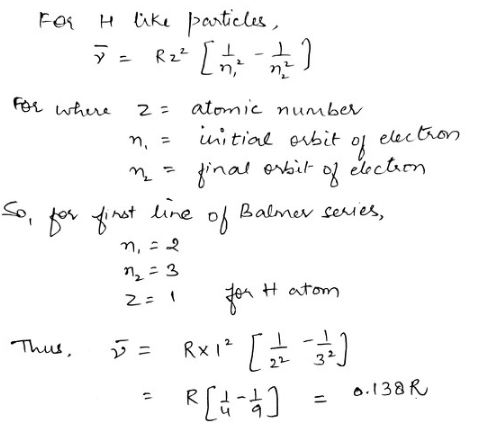 For H like particles,
ν̄ = Rz² [1/n₁² - 1/n₂²]
For where Z = atomic number
n₁ = initial orbit of electron
n₂ = final orbit of electron
So, for first line of Balmer series,
n₁ = 2
n₂ = 3
Z = 1 for H atom
Thus, ν̄ = R×1² [1/2² - 1/3²]
= R[1/4 - 1/9] = 0.138R